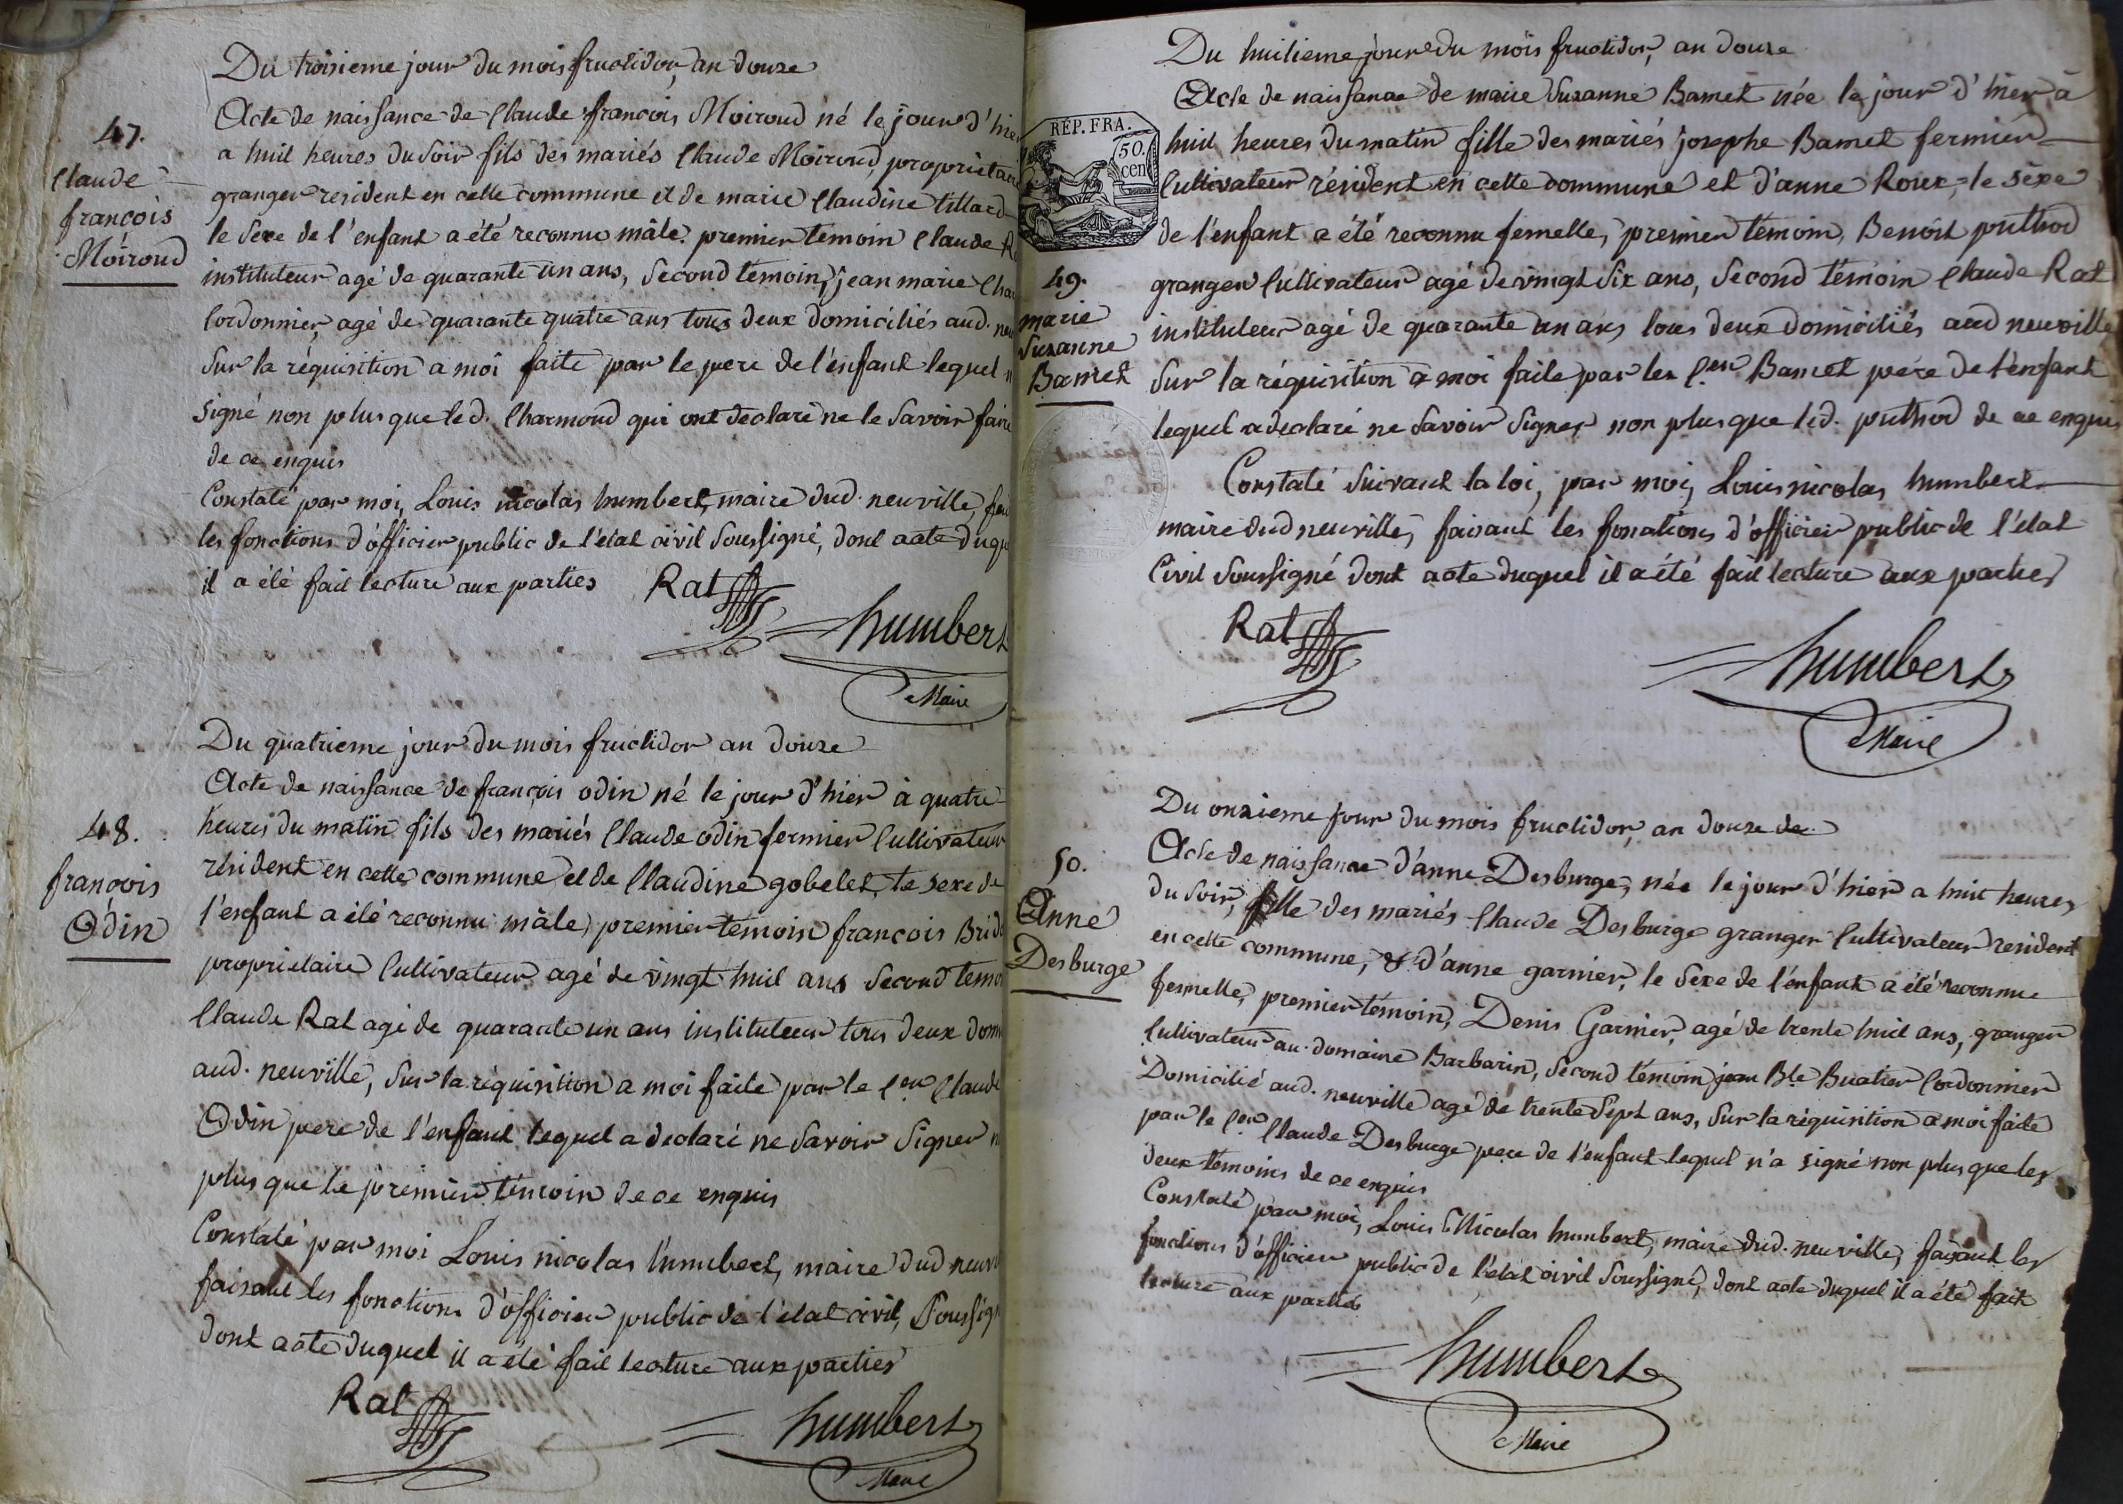 Du troisieme jour du mois fructidor, an douze
47.
Claude
françois
Moiroud
Acte de naissance de Claude françois Moiroud né le jour d'hier
a huit heures du soir fils des mariés Claude Moiroud, proprietaire
granger resident en cette commune et de marie Claudine tillard
le sexe de l'enfant a été reconnu mâle. premier temoin Claude
instituteur agé de quarante un ans, second temoin, jean marie
Cordonnier, agé de quarante quatre ans tous deux domiciliés aud.
sur la réquisition a moi faite par le pere de l'enfant lequel
signé non plus que led. Charmond qui ont declaré ne le savoir faire
de ce enquis
Constaté par moi, Louis nicolas humbert, maire dud. neuville,
les fonctions d'officier public de l'état civil soussigné, dont acte
il a été fait lecture aux parties
Rat
humbert
Maire
Du quatrieme jour du mois fructidor an douze
48.
françois
Odin
Acte de naissance de françois odin né le jour d'hier à quatre
heures du matin fils des mariés Claude odin fermier Cultivateur
résident en cette commune et de Claudine gobelet, le sexe de
l'enfant a été reconnu mâle, premier temoin françois
proprietaire Cultivateur agé de vingt huit ans second
Claude Rat agé de quarante un ans instituteur tous deux
aud. neuville, sur la réquisition a moi faite par le Cen Claude
Odin pere de l'enfant lequel a declaré ne savoir signer
plus que le premier témoin de ce enquis
Constaté par moi Louis nicolas humbert, maire dud
faisant les fonctions d'officier public de l'état civil,
dont acte duquel il a été fait lecture aux parties
Rat
humbert
Maire
Du huitieme jour du mois fructidor, an douze
REP. FRA.
50.
cen
49.
marie
Suzanne
Bamet
Acte de naissance de marie Suzanne Bamet née le jour d'hier à
huit heures du matin fille des mariés josephe Bamet fermier
Cultivateur résident en cette commune et d'anne Roux, le sèxe
de l'enfant a été reconnu femelle, premier témoin, Benoit puthod
granger Cultivateur agé de vingt six ans, second témoin Claude Rat
instituteur agé de quarante un ans tous deux domiciliés aud neuville
sur la réquisition a moi faite par le Cen Bamet père de l'enfant
lequel a declaré ne savoir signer non plus que led. puthod de ce enquis
Constaté suivant la loi, par moi, Louis nicolas humbert
maire dud neuville, faisant les fonctions d'officier public de l'état
Civil soussigné dont acte duquel il a été fait lecture aux parties
Rat
humbert
Maire
Du onzieme jour du mois fructidor, an douze
50.
Anne
Desburge
Acte de naissance d'anne Desburge, née le jour d'hier a huit heures
du soir, fille des mariés Claude Desburge granger Cultivateur resident
en cette commune, & d'anne garnier, le sexe de l'enfant a été reconnue
femelle, premier témoin, Denis Garnier, agé de trente huit ans, granger
Cultivateur au domaine Barbarin, second témoin jean Bte Buatier Cordonnier
Domicilié aud. neuville agé de trente sept ans, sur la réquisition a moi faite
par le Cen Claude Desburge pere de l'enfant lequel n'a signé non plus que les
deux témoins de ce enquis
Constaté par moi, Louis Nicolas humbert, maire dud. neuville, faisant les
fonctions d'officier public de l'état civil soussigné, dont acte duquel il a été fait
lecture aux parties
humbert
Maire